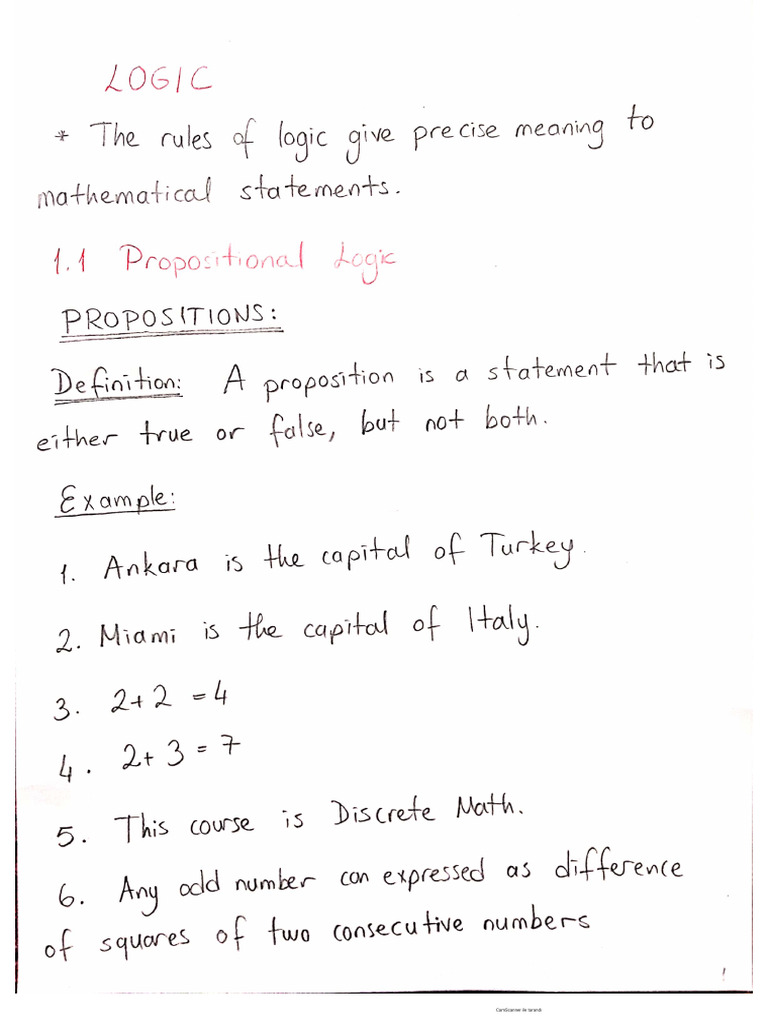 LOGIC
* The rules of logic give precise meaning to
mathematical statements.
1.1 Propositional Logic
PROPOSITIONS:
Definition: A proposition is a statement that is
either true or false, but not both.
Example:
1. Ankara is the capital of Turkey.
2. Miami is the capital of Italy.
3. 2+2 = 4
4. 2+3 = 7
5. This course is Discrete Math.
6. Any odd number can expressed as difference
of squares of two consecutive numbers
CamScanner ile tarandı